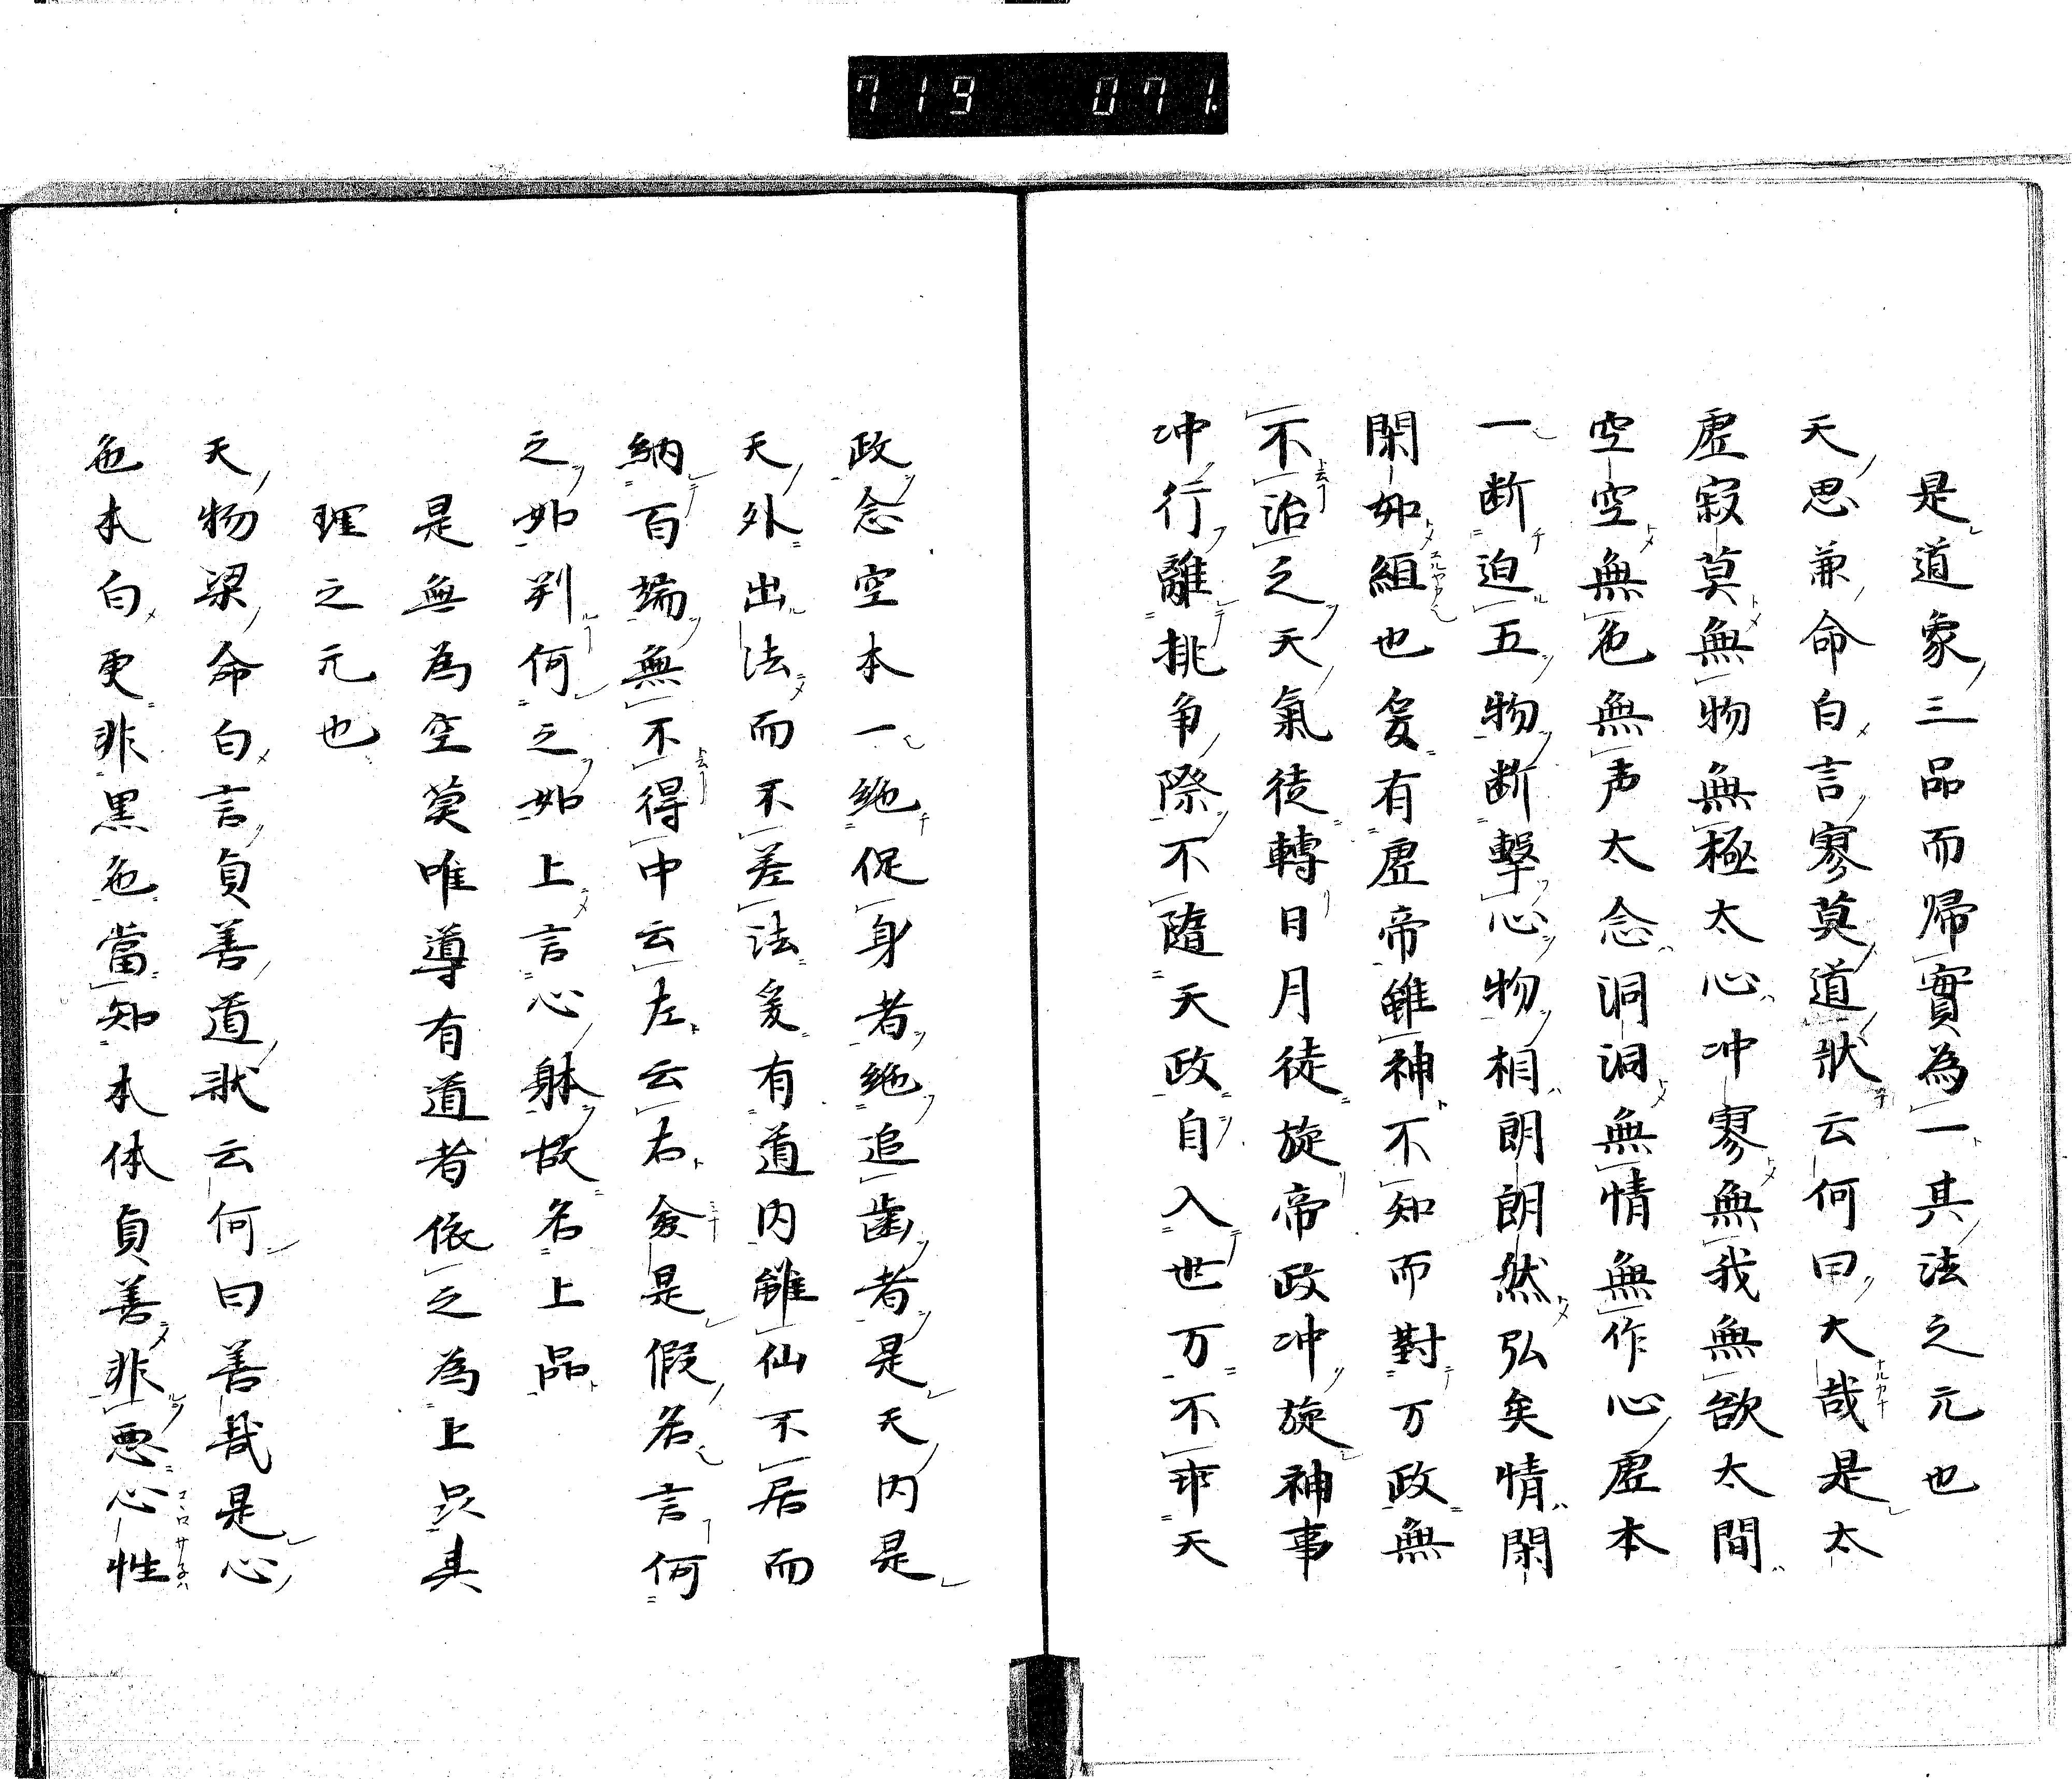 719 071.
是道象三品而帰實為一其法之元也
天思兼命白言寥莫道状云何曰大哉是太
虚寂莫無物無極太心冲寥無我無欲太間
空空無色無声太念洞洞無情無作心虚本
一断迫五物断撃心物相朗朗然弘矣情閑
閑如組也爰有虚帝雖神不知而對万政無
不治之天氣徒轉日月徒旋帝政冲旋神事
冲行離挑争際不隨天政自入世万不天
政念空本一絶促身者絶追歯者是天内是
天外出法而不差法爰有道内雖仙不居而
納百端無不得中云左云右爰是假名言何
之如判何之如上言心躰故名上品
是無為空莫唯導有道者依之為上只其
理之元也
天物梁命白言負善道状云何曰善哉是心
色本白更非黒色當知本体負善非悪心性